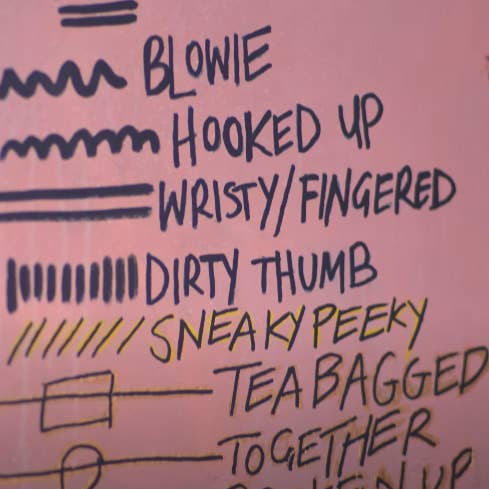 BLOWIE
HOOKED UP
WRISTY/FINGERED
DIRTY THUMB
SNEAKY PEEKY
TEABAGGED
TOGETHER
UP